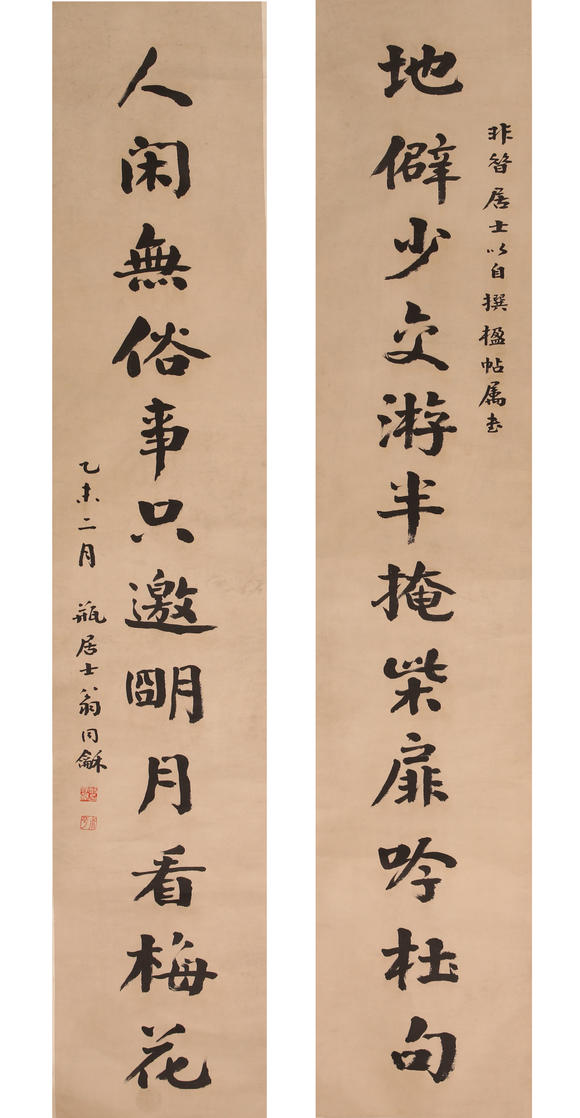 非智居士以自撰楹帖属书
地僻少交游半掩柴扉吟杜句
人闲無俗事只邀朙月看梅花
乙未二月 瓶居士翁同龢